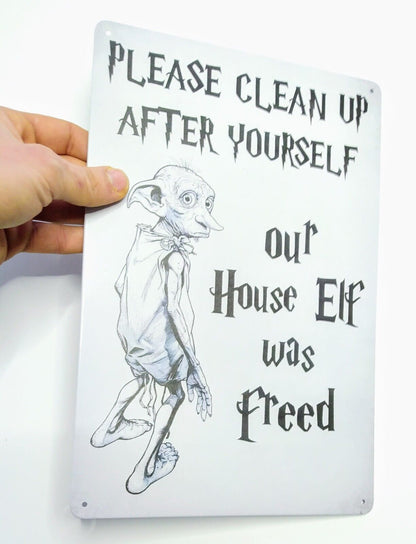 PLEASE CLEAN UP
AFTER YOURSELF
our
House Elf
was
freed